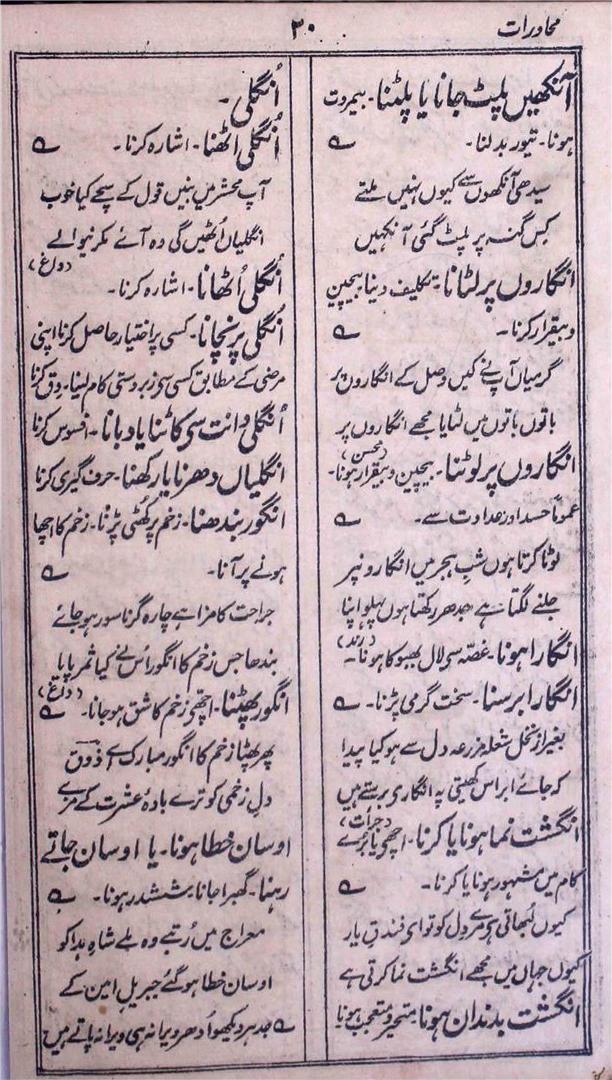 محاورات
۳۰
آنکھیں پلٹ جانا یا پلٹنا۔ بیمروت
ہونا۔ تیور بدلنا۔ ؎
سیدھی آنکھوں سے کیوں نہیں ملتے
کس گنہ پر پلٹ گئی آنکھیں
انگاروں پر لٹانا۔ تکلیف دینا بیچین
وبیقرار کرنا۔ ؎
گرمیاں آپ نے کیں وصل کے انگاروں پر
باتوں باتوں میں لٹایا مجھے انگاروں پر
(محسن)
انگاروں پر لوٹنا۔ بیچین وبیقرار ہونا۔
عموماً حسد اور عداوت سے۔ ؎
لوٹا کرتا ہوں شبِ ہجر میں انگارونپر
جلنے لگتا ہے جدھر رکھتا ہوں پہلو اپنا
(رند)
انگارا ہونا۔ غصّہ سی لال بھبوکا ہونا۔
انگارا برسنا۔ سخت گرمی پڑنا۔ ؎
بغیر از نخل شعلہ مزرعہ دل سے ہو کیا پیدا
کہ جائے ابر اس کھیتی پہ انگاری برستے ہیں
(جرات)
انگشت نما ہونا یا کرنا۔ اچھی یا بُرے
کام میں مشہور ہونا یا کرنا۔ ؎
کیوں لُبھاتی ہی مرے دل کو تو ای فندقِ یار
کیوں جہاں میں مجھے انگشت نما کرتی ہے
انگشت بدندان ہونا۔ متحیر ومتعجب ہونا
اُنگلی۔
اُنگلی اٹھنا۔ اشارہ کرنا۔ ؎
آپ محشر میں بنیں قول کے سچے کیا خوب
انگلیاں اُٹھیں گی وہ آئے مکرنیوالے
(داغ)
اُنگلی اُٹھانا۔ اشارہ کرنا۔
اُنگلی پر نچانا۔ کسی پر اختیار حاصل کرنا اپنی
مرضی کے مطابق کسی سی زبردستی کام لینا۔ دق کرنا
اُنگلی دانت سی کاٹنا یا دبانا۔ افسوس کرنا
انگلیاں دھرنا یا رکھنا۔ حرف گیری کرنا
انگور بندھنا۔ زخم پر کُھٹی پڑنا۔ زخم کا اچھا
ہونے پر آنا۔ ؎
جراحت کا مزا ہے چارہ گر ناسور ہو جائے
بندھا جس زخم کا انگور اُس نے کیا ثمر پایا
(داغ)
انگور پھٹنا۔ اچھی زخم کا شق ہوجانا۔ ؎
پھر پھٹا زخم کا انگور مبارک اے ذوق
دلِ زخمی کو ترے بادۂ عشرت کے مزے
اوسان خطا ہونا۔ یا اوسان جاتے
رہنا۔ گھبرا جانا۔ ششدر ہونا۔ ؎
معراج میں رُتبے وہ ملے شاہِ ہدا کو
اوسان خطا ہوگئے جبریلِ امین کے
؎ جدہر دکھیو اُدھر ویرانہ ہی ویرانہ پاتے ہیں